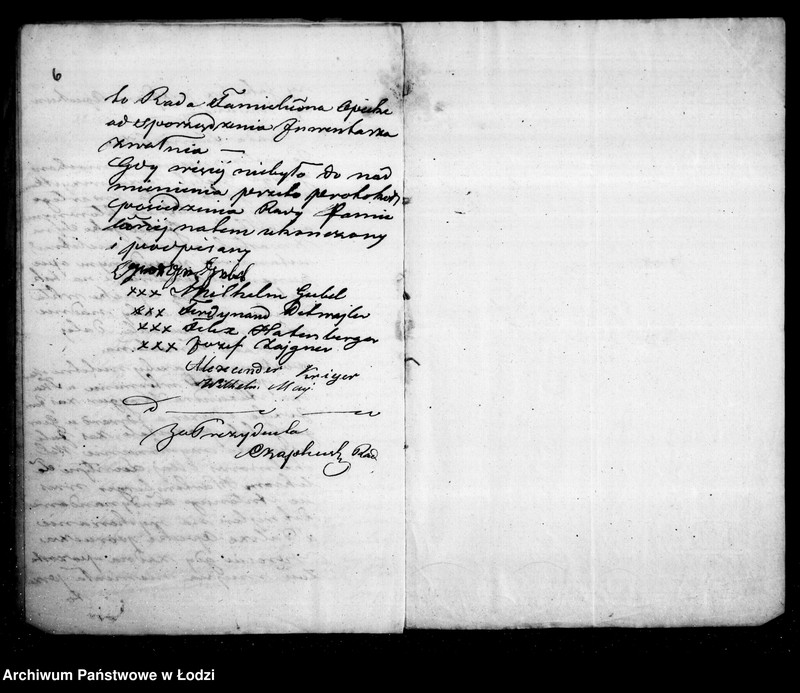 6
to Rada Familiina Opiekę
od Sporządzenia Inwentarza
zwalnia —
Gdy więcéj niebyło do nad
mienienia przeto protokoł
posiedzenia Rady Fami
liinéj natem ukonczony
i podpisany
xxx Wilhelm Gebel
xxx Ferdynand Detmajler
xxx Felix Hatenberger
xxx Jozef Zajgner
Alexander Kriger
Wilhelm May
Za Prezydenta
Czaplicki Rad
Archiwum Państwowe w Łodzi